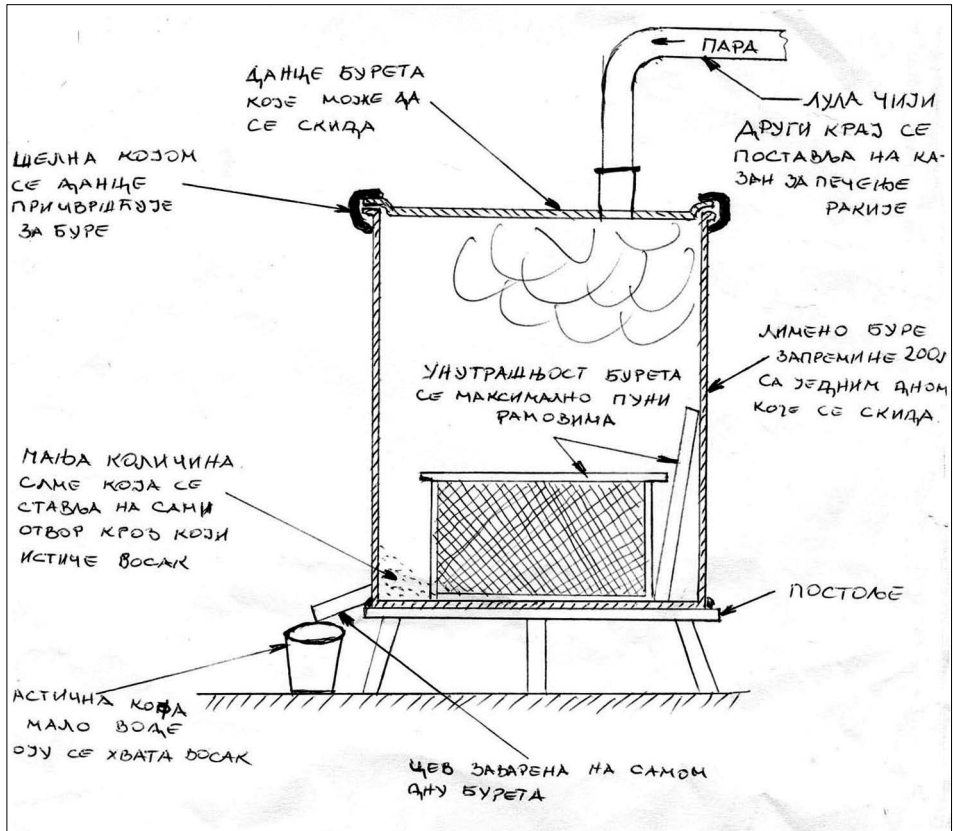 ПАРА
ДАНЦЕ БУРЕТА
КОЈЕ МОЖЕ ДА
СЕ СКИДА
ЛУЛА ЧИЈИ
ДРУГИ КРАЈ СЕ
ПОСТАВЉА НА КА-
ЗАН ЗА ПЕЧЕЊЕ
РАКИЈЕ
ШЕЛНА КОЈОМ
СЕ ДАНЦЕ
ПРИЧВРШЋУЈЕ
ЗА БУРЕ
ЛИМЕНО БУРЕ
ЗАПРЕМИНЕ 200л
СА ЈЕДНИМ ДНОМ
КОЈЕ СЕ СКИДА.
УНУТРАШЊОСТ БУРЕТА
СЕ МАКСИМАЛНО ПУНИ
РАМОВИМА
МАЊА КОЛИЧИНА
СЛМЕ КОЈА СЕ
СТАВЉА НА САМИ
ОТВОР КРОЗ КОЈИ
ИСТИЧЕ ВОСАК
ПОСТОЉЕ
АСТИЧНА КОФА
МАЛО ВОДЕ
ОЈУ СЕ ХВАТА ВОСАК
ЦЕВ ЗАВАРЕНА НА САМОМ
ДНУ БУРЕТА